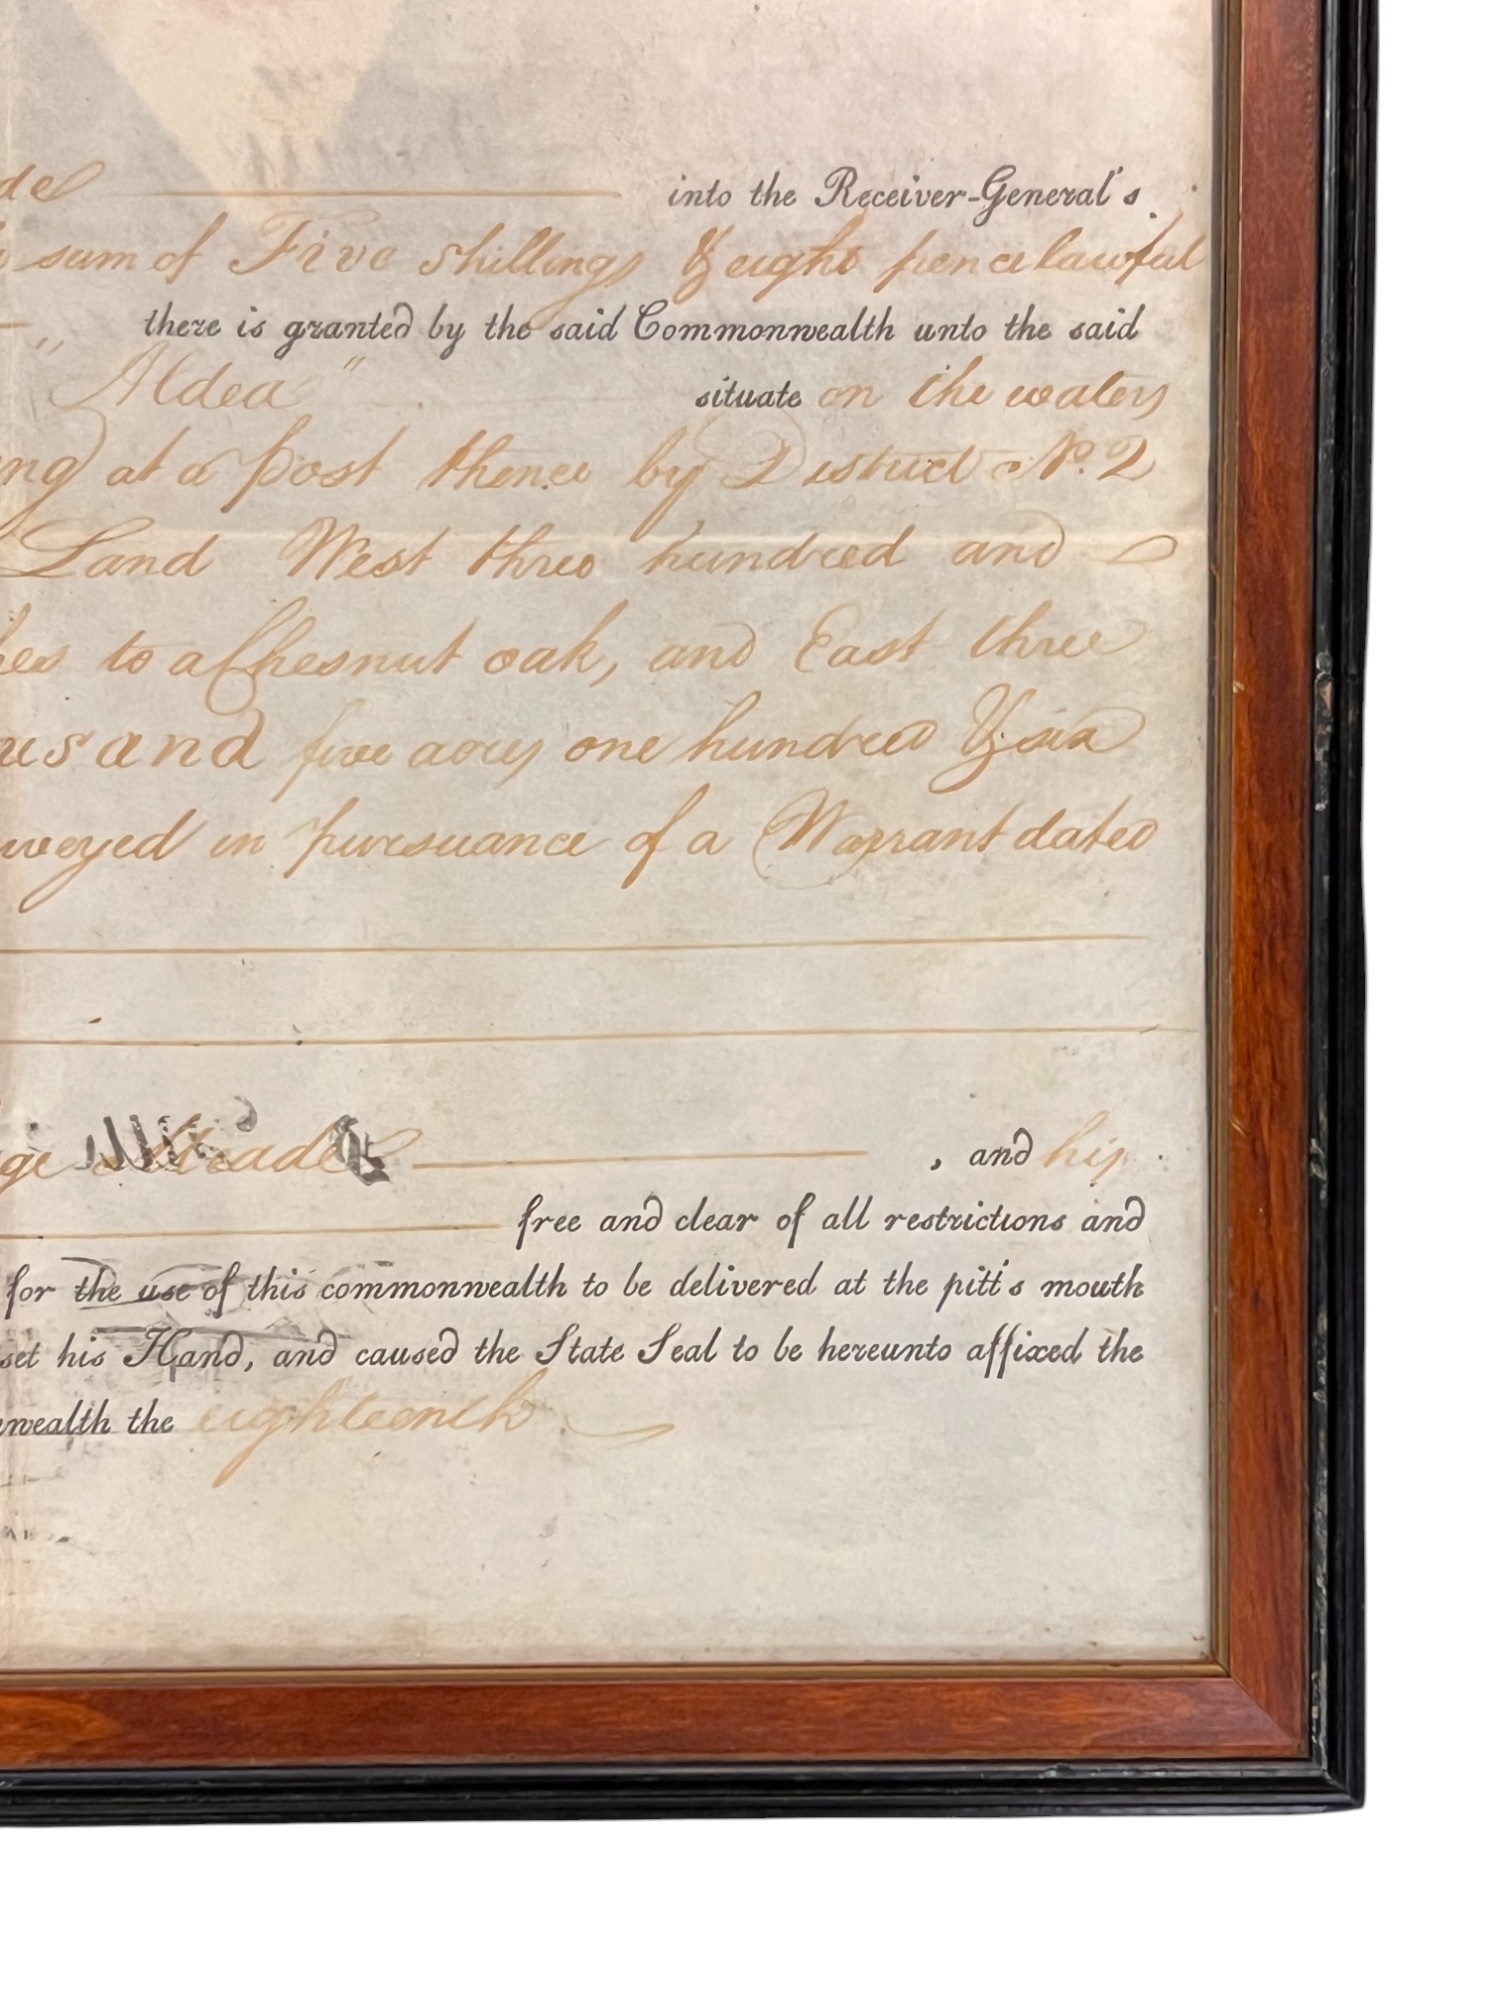 de into the Receiver-General's
sum of Five shillings & eight pence lawful
there is granted by the said Commonwealth unto the said
" Aldea " situate on the waters
ng at a post thence by District No. 2
Land West three hundred and
hes to a Chesnut oak, and East three
usand five acres one hundred & six
veyed in pursuance of a Warrant dated
ge Meade , and his
free and clear of all restrictions and
for the use of this commonwealth to be delivered at the pitt's mouth
set his Hand, and caused the State Seal to be hereunto affixed the
nwealth the eighteenth